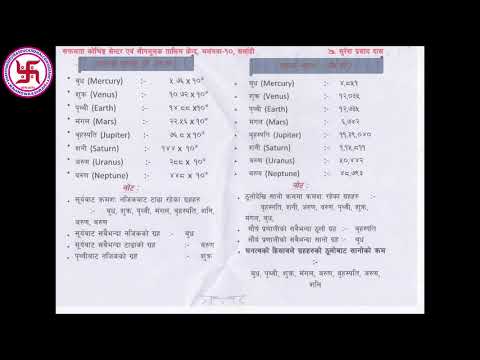 सफलता कोचिङ्ग सेन्टर एवं सीपमूलक तालिम केन्द्र, बसन्तपा-१०, सर्लाही
✍ सुरेश प्रसाद दास
बुध (Mercury) :- ५.७६ x १०⁷
शुक्र (Venus) :- १०.७२ x १०⁷
पृथ्वी (Earth) :- १४.८८ x१०⁷
मंगल (Mars) :- २२.५६ x १०⁷
बृहस्पति (Jupiter) :- ७६.८ x १०⁷
शनी (Saturn) :- १४४ x १०⁷
अरुण (Uranus) :- २८८ x १०⁷
वरुण (Neptune) :- ४४८ x १०⁷
नोट :
सूर्यबाट क्रमशः नजिकबाट टाढा रहेका ग्रहहरु
:- बुध, शुक्र, पृथ्वी, मंगल, बृहस्पति, शनि, अरुण, वरुण
सूर्यबाट सबैभन्दा नजिकको ग्रह :- बुध
सूर्यबाट सबैभन्दा टाढाको ग्रह :- वरुण
पृथ्वीबाट नजिकको ग्रह :- शुक्र
बुध (Mercury) :- ४,८५१
शुक्र (Venus) :- १२,०३५
पृथ्वी (Earth) :- १२,७३५
मंगल (Mars) :- ६,७४२
बृहस्पति (Jupiter) :- १,३९,०४०
शनी (Saturn) :- १,१५,८११
अरुण (Uranus) :- ५०,४४२
वरुण (Neptune) :- ४८,७९३
नोट :
ठूलोदेखि सानो क्रममा क्रमशः रहेका ग्रहहरु
:- बृहस्पति, शनी, अरुण, वरुण, पृथ्वी, शुक्र,
मंगल, बुध,
सौर्य प्रणालीको सबैभन्दा ठूलो ग्रह :- बृहस्पति
सौर्य प्रणालीको सबैभन्दा सानो ग्रह :- बुध
घनत्वको हिसाबले ग्रहहरुको ठूलोबाट सानोको क्रम
:-
बुध, पृथ्वी, शुक्र, मंगल, वरुण, बृहस्पति, अरुण,
शनि